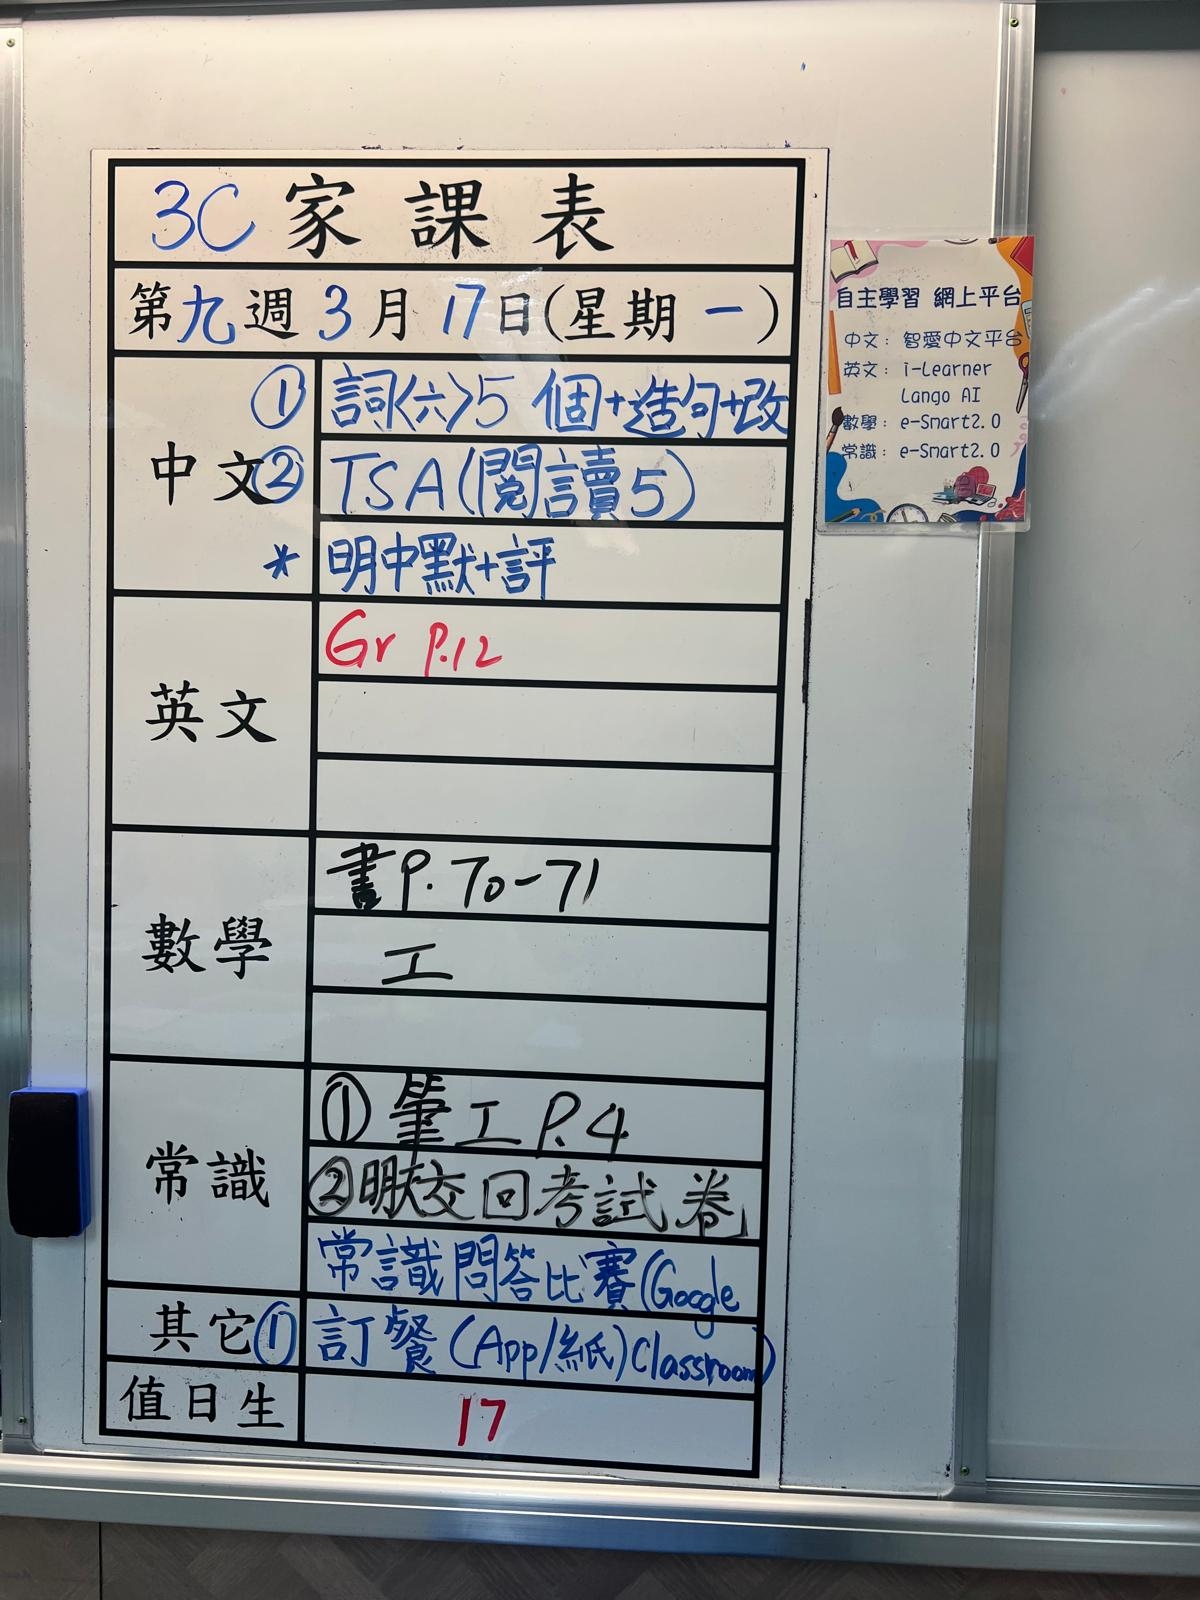 3C 家課表
第九週 3月 17日(星期 一)
中文
① 詞〈六〉5 個+造句+改
② TSA(閱讀5)
* 明中默+評
英文
Gr P.12
數學
書P.70-71
工
常識
① 筆工 P.4
②明交回考試卷
常識問答比賽(Google
Classroom)
其它
① 訂餐(App/紙)
值日生
17
自主學習 網上平台
中文: 智愛中文平台
英文: i-Learner
Lango AI
數學: e-Smart2.0
常識: e-Smart2.0